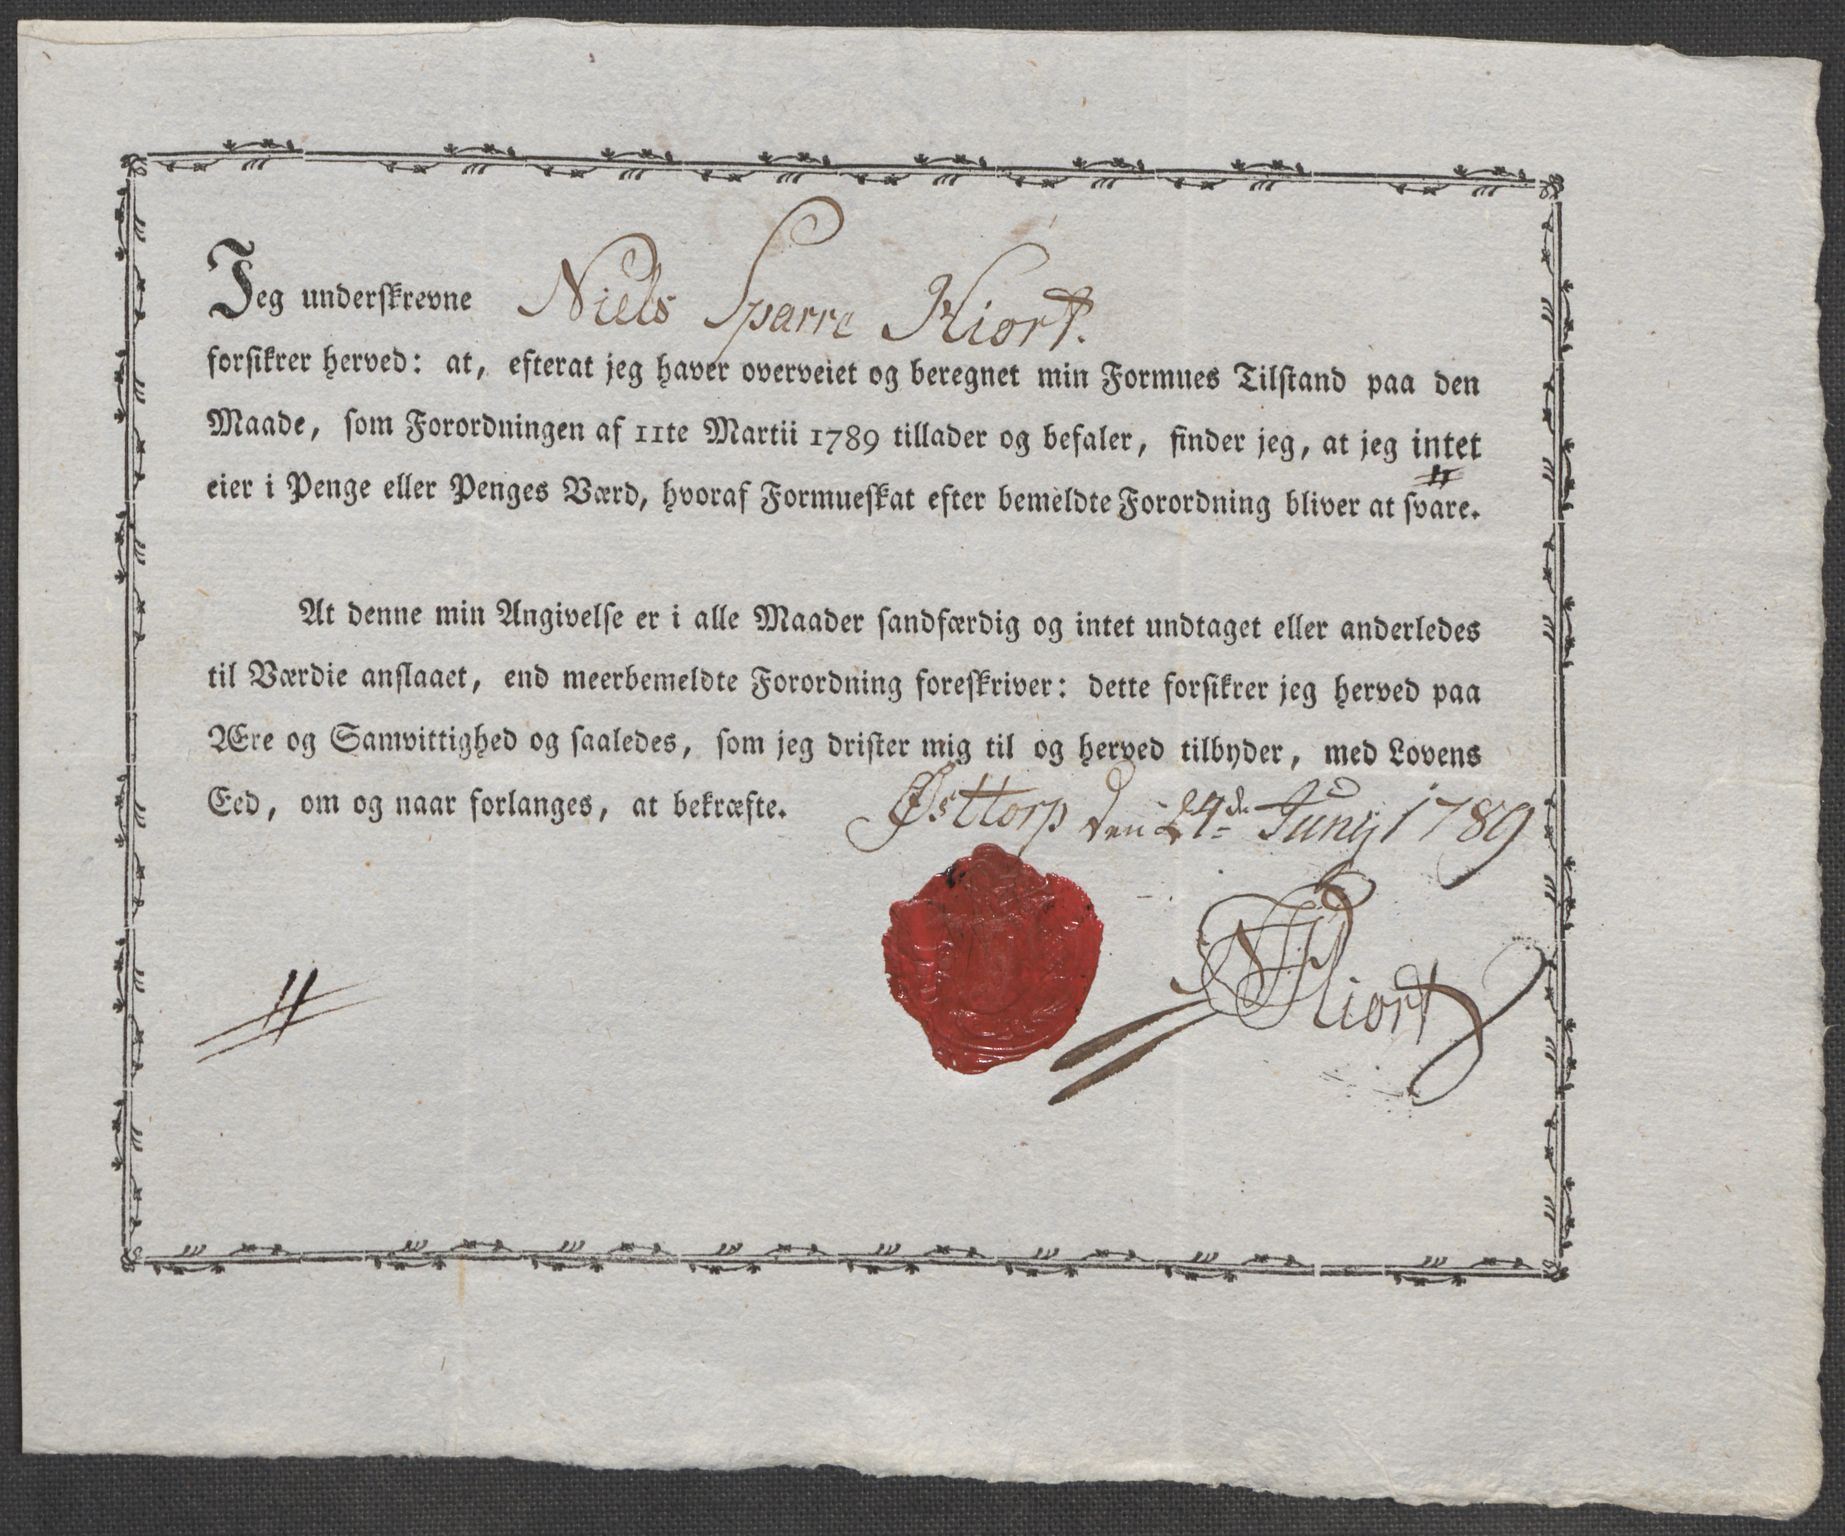 Jeg underskrevne Niels Sparre Hiort.
forsikrer herved: at, efterat jeg haver overveiet og beregnet min Formues Tilstand paa den
Maade, som Forordningen af 11te Martii 1789 tillader og befaler, finder jeg, at jeg intet
eier i Penge eller Penges Værd, hvoraf Formueskat efter bemeldte Forordning bliver at svare.
At denne min Angivelse er i alle Maader sandfærdig og intet undtaget eller anderledes
til Værdie anslaaet, end meerbemeldte Forordning foreskriver: dette forsikrer jeg herved paa
Ære og Samvittighed og saaledes, som jeg drister mig til og herved tilbyder, med Lovens
Eed, om og naar forlanges, at bekræfte. Østtorp den 24de Junij 1789
NSHiort